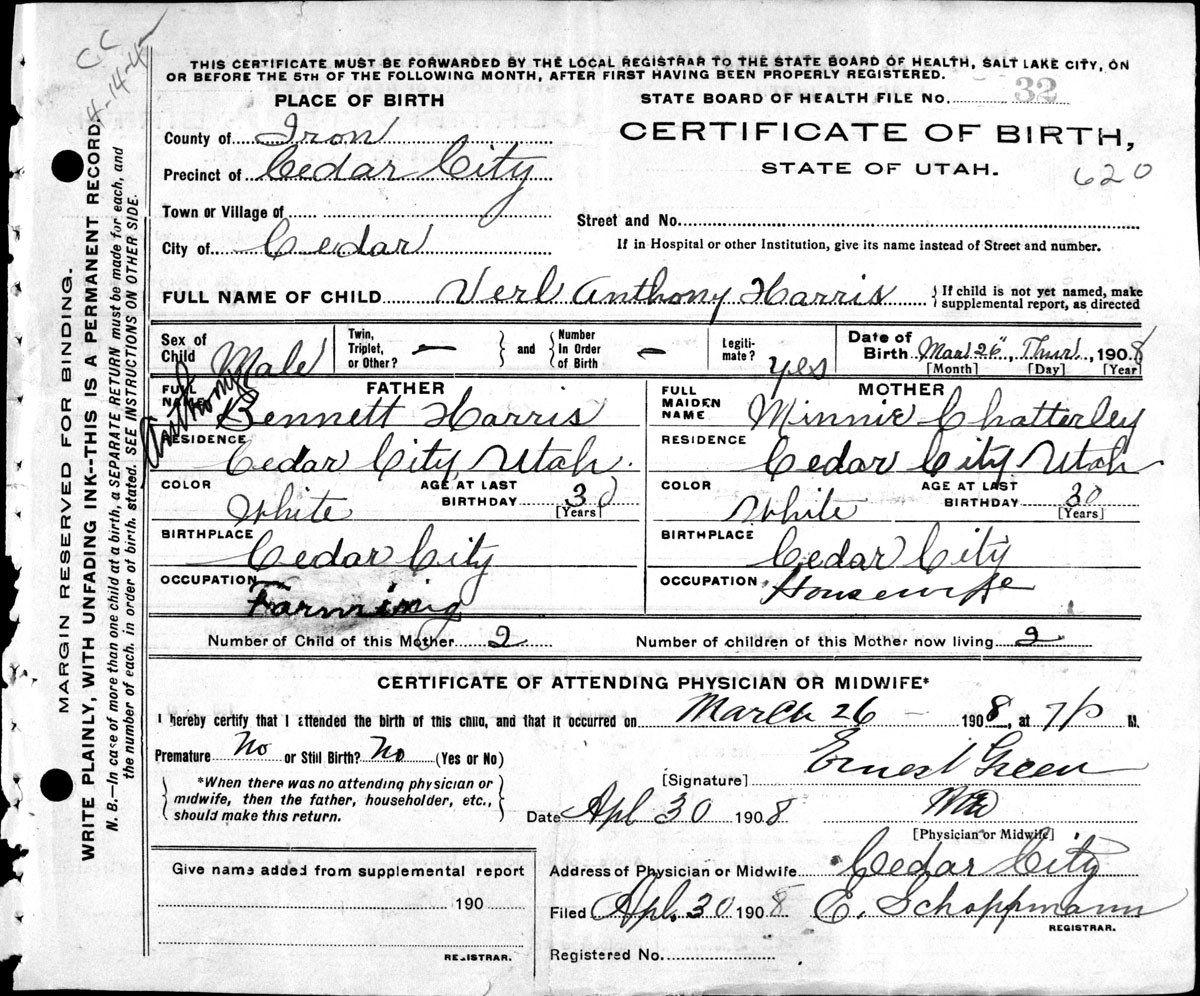 CC
4-14-4
THIS CERTIFICATE MUST BE FORWARDED BY THE LOCAL REGISTRAR TO THE STATE BOARD OF HEALTH, SALT LAKE CITY, ON
OR BEFORE THE 5TH OF THE FOLLOWING MONTH, AFTER FIRST HAVING BEEN PROPERLY REGISTERED.
MARGIN RESERVED FOR BINDING.
WRITE PLAINLY, WITH UNFADING INK--THIS IS A PERMANENT RECORD.
N. B.—In case of more than one child at a birth, a SEPARATE RETURN must be made for each, and
the number of each, in order of birth, stated. SEE INSTRUCTIONS ON OTHER SIDE.
PLACE OF BIRTH
County of Iron
Precinct of Cedar City
Town or Village of
City of Cedar
STATE BOARD OF HEALTH FILE NO. 32
CERTIFICATE OF BIRTH,
STATE OF UTAH.
620
Street and No.
If in Hospital or other Institution, give its name instead of Street and number.
FULL NAME OF CHILD Verl Anthony Harris { If child is not yet named, make
supplemental report, as directed
Sex of Child Male
Twin, Triplet, or Other? —
and
Number In Order of Birth —
Legiti-mate? yes
Date of Birth Mar 26", Thur, 1908
[Month] [Day] [Year]
FATHER
FULL NAME Anthony Bennett Harris
RESIDENCE
Cedar City, Utah.
COLOR White AGE AT LAST BIRTHDAY 30 [Years]
BIRTHPLACE
Cedar City
OCCUPATION
Farming
MOTHER
FULL MAIDEN NAME Minnie Chatterley
RESIDENCE
Cedar City, Utah
COLOR White AGE AT LAST BIRTHDAY 30 [Years]
BIRTHPLACE
Cedar City
OCCUPATION Housewife
Number of Child of this Mother 2 Number of children of this Mother now living 2
CERTIFICATE OF ATTENDING PHYSICIAN OR MIDWIFE*
I hereby certify that I attended the birth of this child, and that it occurred on March 26 – 1908, at 7 P M.
Premature No or Still Birth? No (Yes or No)
*When there was no attending physician or
midwife, then the father, householder, etc.,
should make this return.
[Signature] Ernest Green
Date Apl 30 1908 MD
[Physician or Midwife]
Address of Physician or Midwife Cedar City
Filed Apl. 30 1908 E. Schoppmann
REGISTRAR.
Registered No.
Give name added from supplemental report
190
REGISTRAR.